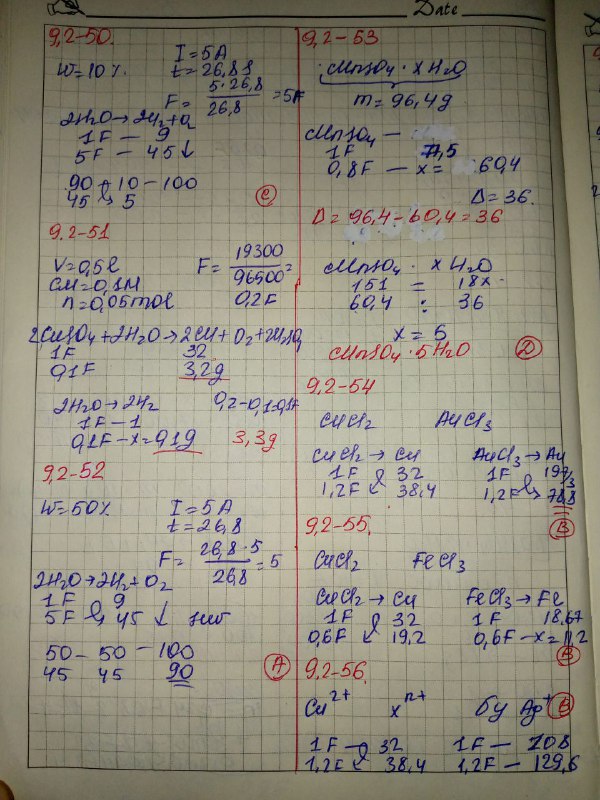 Date
9,2-50.
W=10%. I=5A
t=26,8
F= 5·26,8 / 26,8 =5F
2H2O→2H2+O2
1F — 9
5F — 45↓
90 + 10 — 100
45 5
C
9.2-51
V=0,5l F= 19300 / 96500 =
CM=0,1M
n=0,05mol 0,2F
2CuSO4+2H2O→2Cu+O2+2H2SO4
1F 32
0,1F 3,2g
2H2O→2H2 0,2-0,1=0,1F
1F—1
0,1F—x=0,1g 3,3g
9,2-52
W=50%. I=5A
t=26,8
F= 26,8·5 / 26,8 =5
2H2O→2H2+O2
1F 9
5F 45 ↓
50 — 50 — 100
45 45 90
A
9,2-53
MnSO4·xH2O
m=96,4g
MnSO4 —
1F 75,5
0,8F — x= 60,4
Δ=36.
Δ=96,4-60,4=36
MnSO4· xH2O
151 = 18x
60,4 : 36
x=5
MnSO4·5H2O D
9,2-54
CuCl2 AuCl3
CuCl2→Cu AuCl3→Au
1F 32 1F 197/3
1,2F 38,4 1,2F 78,8
B
9,2-55.
CuCl2 FeCl3
CuCl2→Cu FeCl3→Fe
1F 32 1F 18,67
0,6F 19,2 0,6F—x=11,2
B
9,2-56.
Cu2+ xn+ бу Ag+ B
1F — 32 1F — 108
1,2F 38,4 1,2F — 129,6